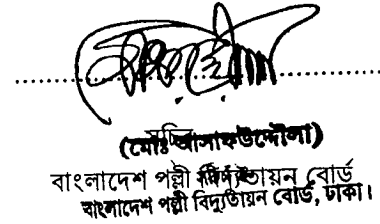 (মোঃ আসাফউদ্দৌলা)
সচিব
বাংলাদেশ পল্লী বিদ্যুতায়ন বোর্ড
বাংলাদেশ পল্লী বিদ্যুতায়ন বোর্ড, ঢাকা।